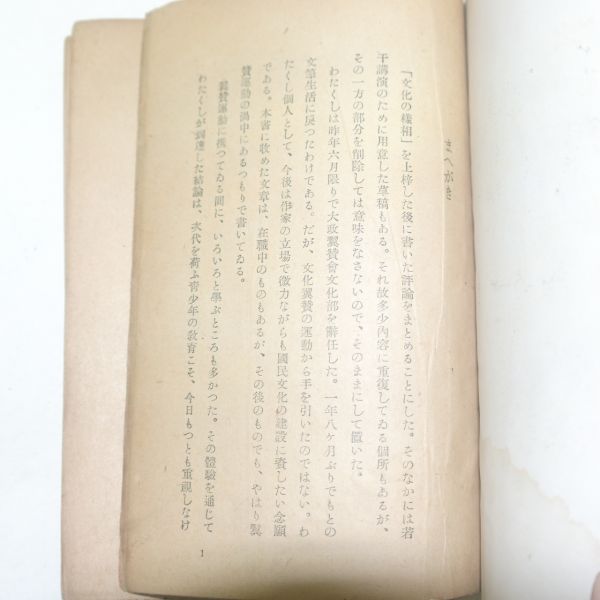 まへがき
「文化の様相」を上梓した後に書いた評論をまとめることにした。そのなかには若
干講演のために用意した草稿もある。それ故多少內容に重復してゐる個所もあるが、
その一方の部分を削除しては意味をなさないので、そのままにして置いた。
わたくしは昨年六月限りで大政翼贊會文化部を辭任した。一年八ヶ月ぶりでもとの
文筆生活に戾つたわけである。だが、文化翼贊の運動から手を引いたのではない。わ
たくし個人として、今後は作家の立場で微力ながらも國民文化の建設に資したい念願
である。本書に收めた文章は、在職中のものもあるが、その後のものでも、やはり翼
贊運動の渦中にあるつもりで書いてゐる。
翼贊運動に携つてゐる間に、いろいろと學ぶところも多かつた。その體驗を通じて
わたくしが到達した結論は、次代を荷ふ靑少年の敎育こそ、今日もつとも重視しなけ
1